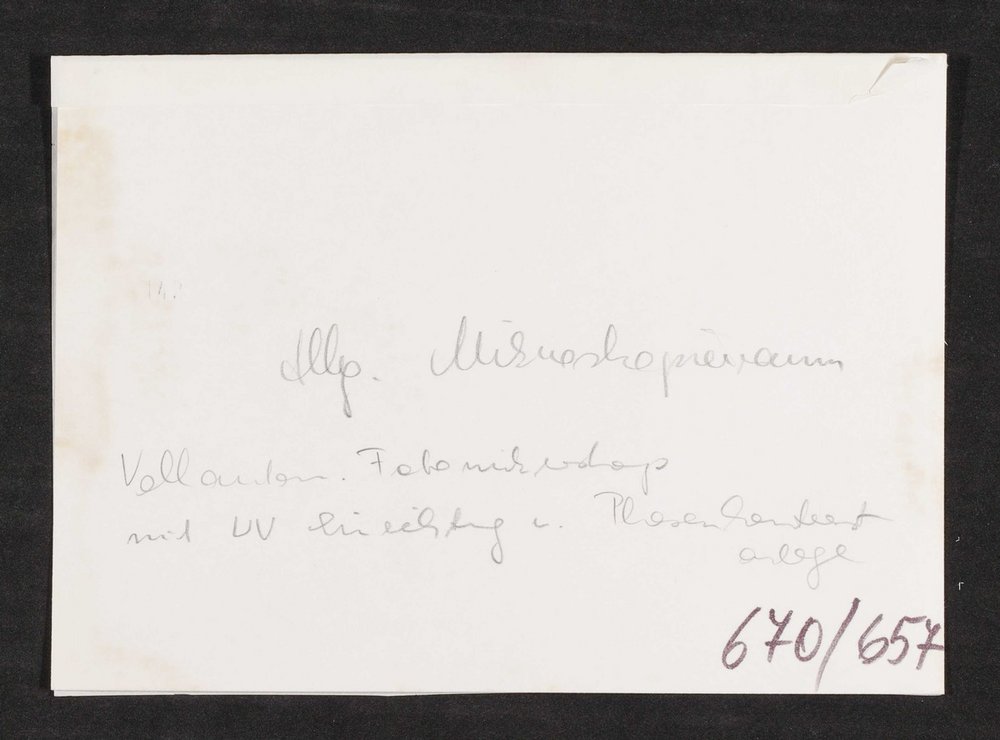 Allg. Mikroskopierraum
Vollautom. Fotomikroskop
mit UV Einrichtung u. Phasenkontrast
anlage
670/657